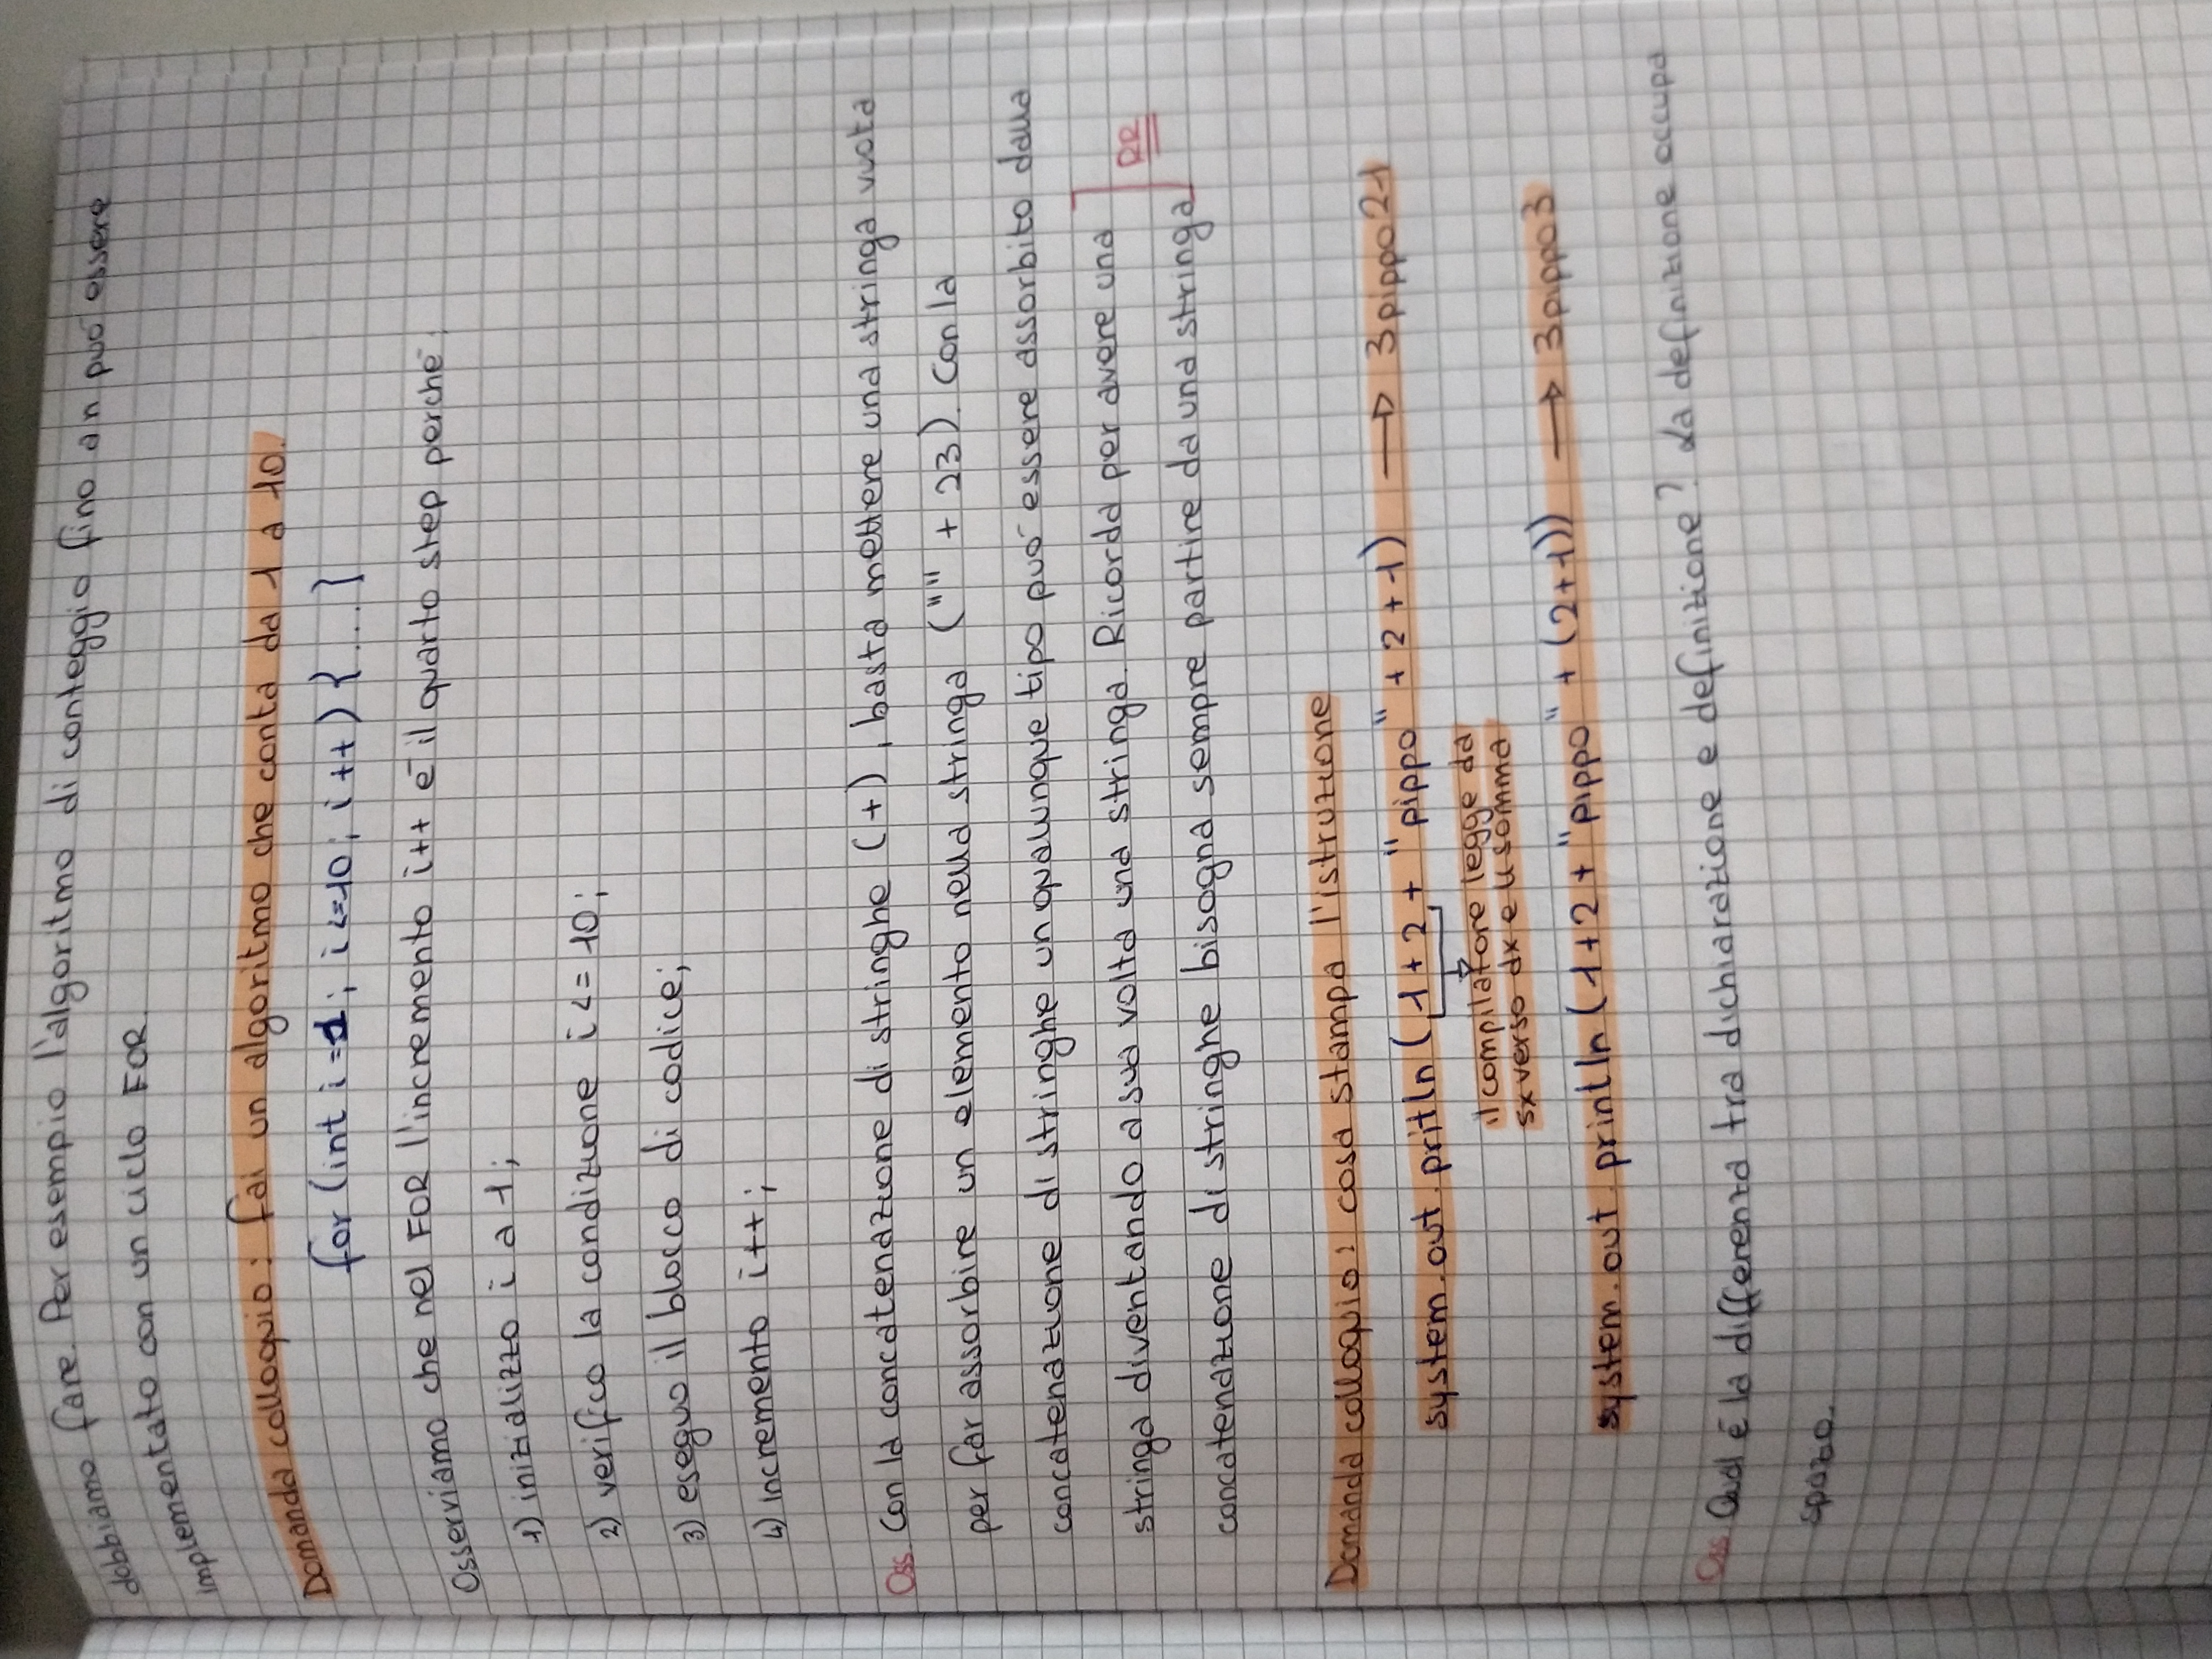 dobbiamo fare. Per esempio l'algoritmo di conteggio fino an può essere
implementato con un ciclo FOR.
Domanda colloquio: fai un algoritmo che conta da 1 a 10.
for (int i=1; i<=10; i++) {...}
Osserviamo che nel FOR l'incremento i++ è il quarto step perché:
1) inizializzo i a 1;
2) verifico la condizione i<=10;
3) eseguo il blocco di codice;
4) incremento i++;
Oss Con la concatenazione di stringhe (+), basta mettere una stringa vuota
per far assorbire un elemento nella stringa ("" + 23). Con la
concatenazione di stringhe un qualunque tipo può essere assorbito dalla
stringa diventando a sua volta una stringa. Ricorda per avere una
RR
concatenazione di stringhe bisogna sempre partire da una stringa
Domanda colloquio: cosa stampa l'istruzione
system.out.pritln (1+2+ "pippo" +2+1) → 3pippo21
il compilatore legge da
sx verso dx e li somma
system.out.println (1+2+ "pippo" + (2+1)) → 3pippo3
Oss Qual è la differenza tra dichiarazione e definizione? La definizione occupa
spazio.